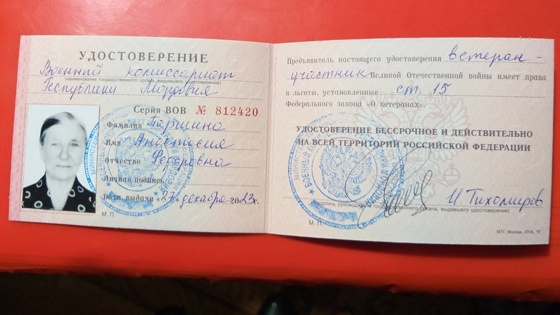 УДОСТОВЕРЕНИЕ
Военный комиссариат
(наименование государственного органа, выдавшего удостоверение)
Республики Мордовия
Серия ВОВ № 812420
Фамилия
Имя Анастасия
Отчество Федоровна
Личная подпись
Дата выдачи «27» декабря 20
М. П.
Предъявитель настоящего удостоверения ветеран-
участник Великой Отечественной войны имеет права
и льготы, установленные ст. 15
Федерального закона «О ветеранах».
УДОСТОВЕРЕНИЕ БЕССРОЧНОЕ И ДЕЙСТВИТЕЛЬНО
НА ВСЕЙ ТЕРРИТОРИИ РОССИЙСКОЙ ФЕДЕРАЦИИ
И Тихомиров
М. П.